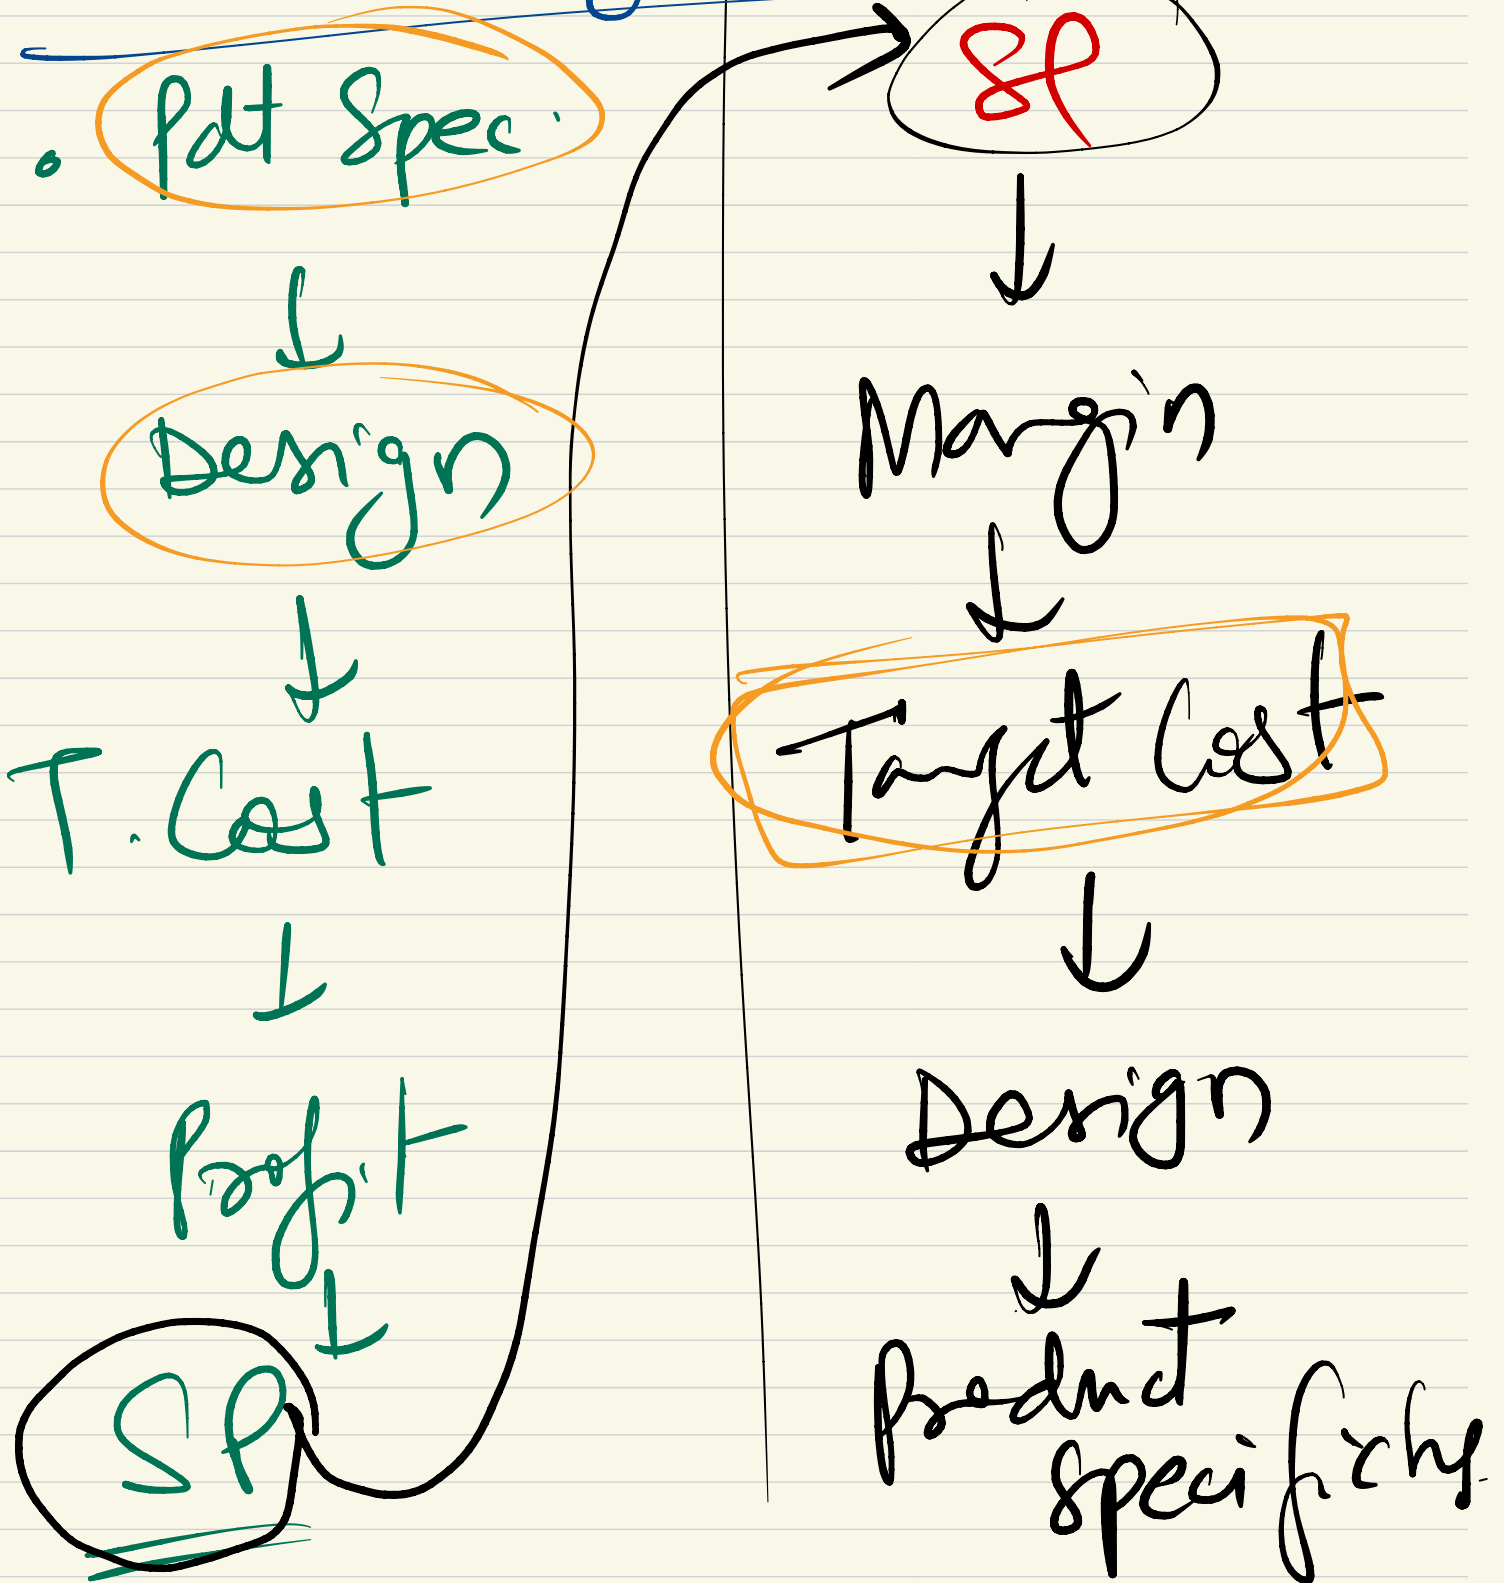 Pdt Spec.
↓
Design
↓
T. Cost
↓
Profit
↓
SP
SP
↓
Margin
↓
Target Cost
↓
Design
↓
Product